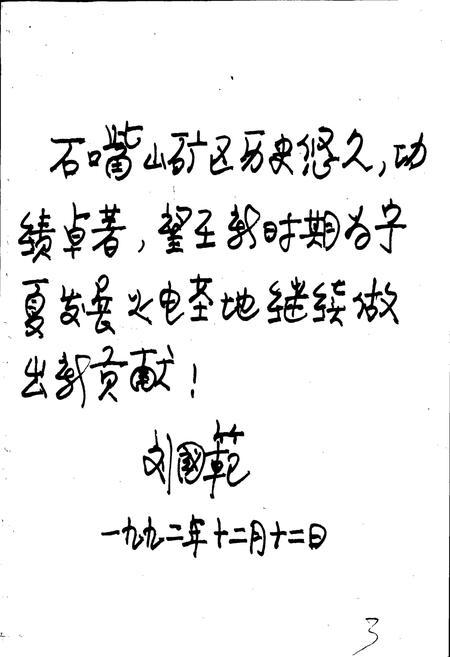 石嘴山矿区历史悠久,功
绩卓著,望在新时期为宁
夏发展火电基地继续做
出新贡献!
刘国范
一九九二年十二月十二日
3